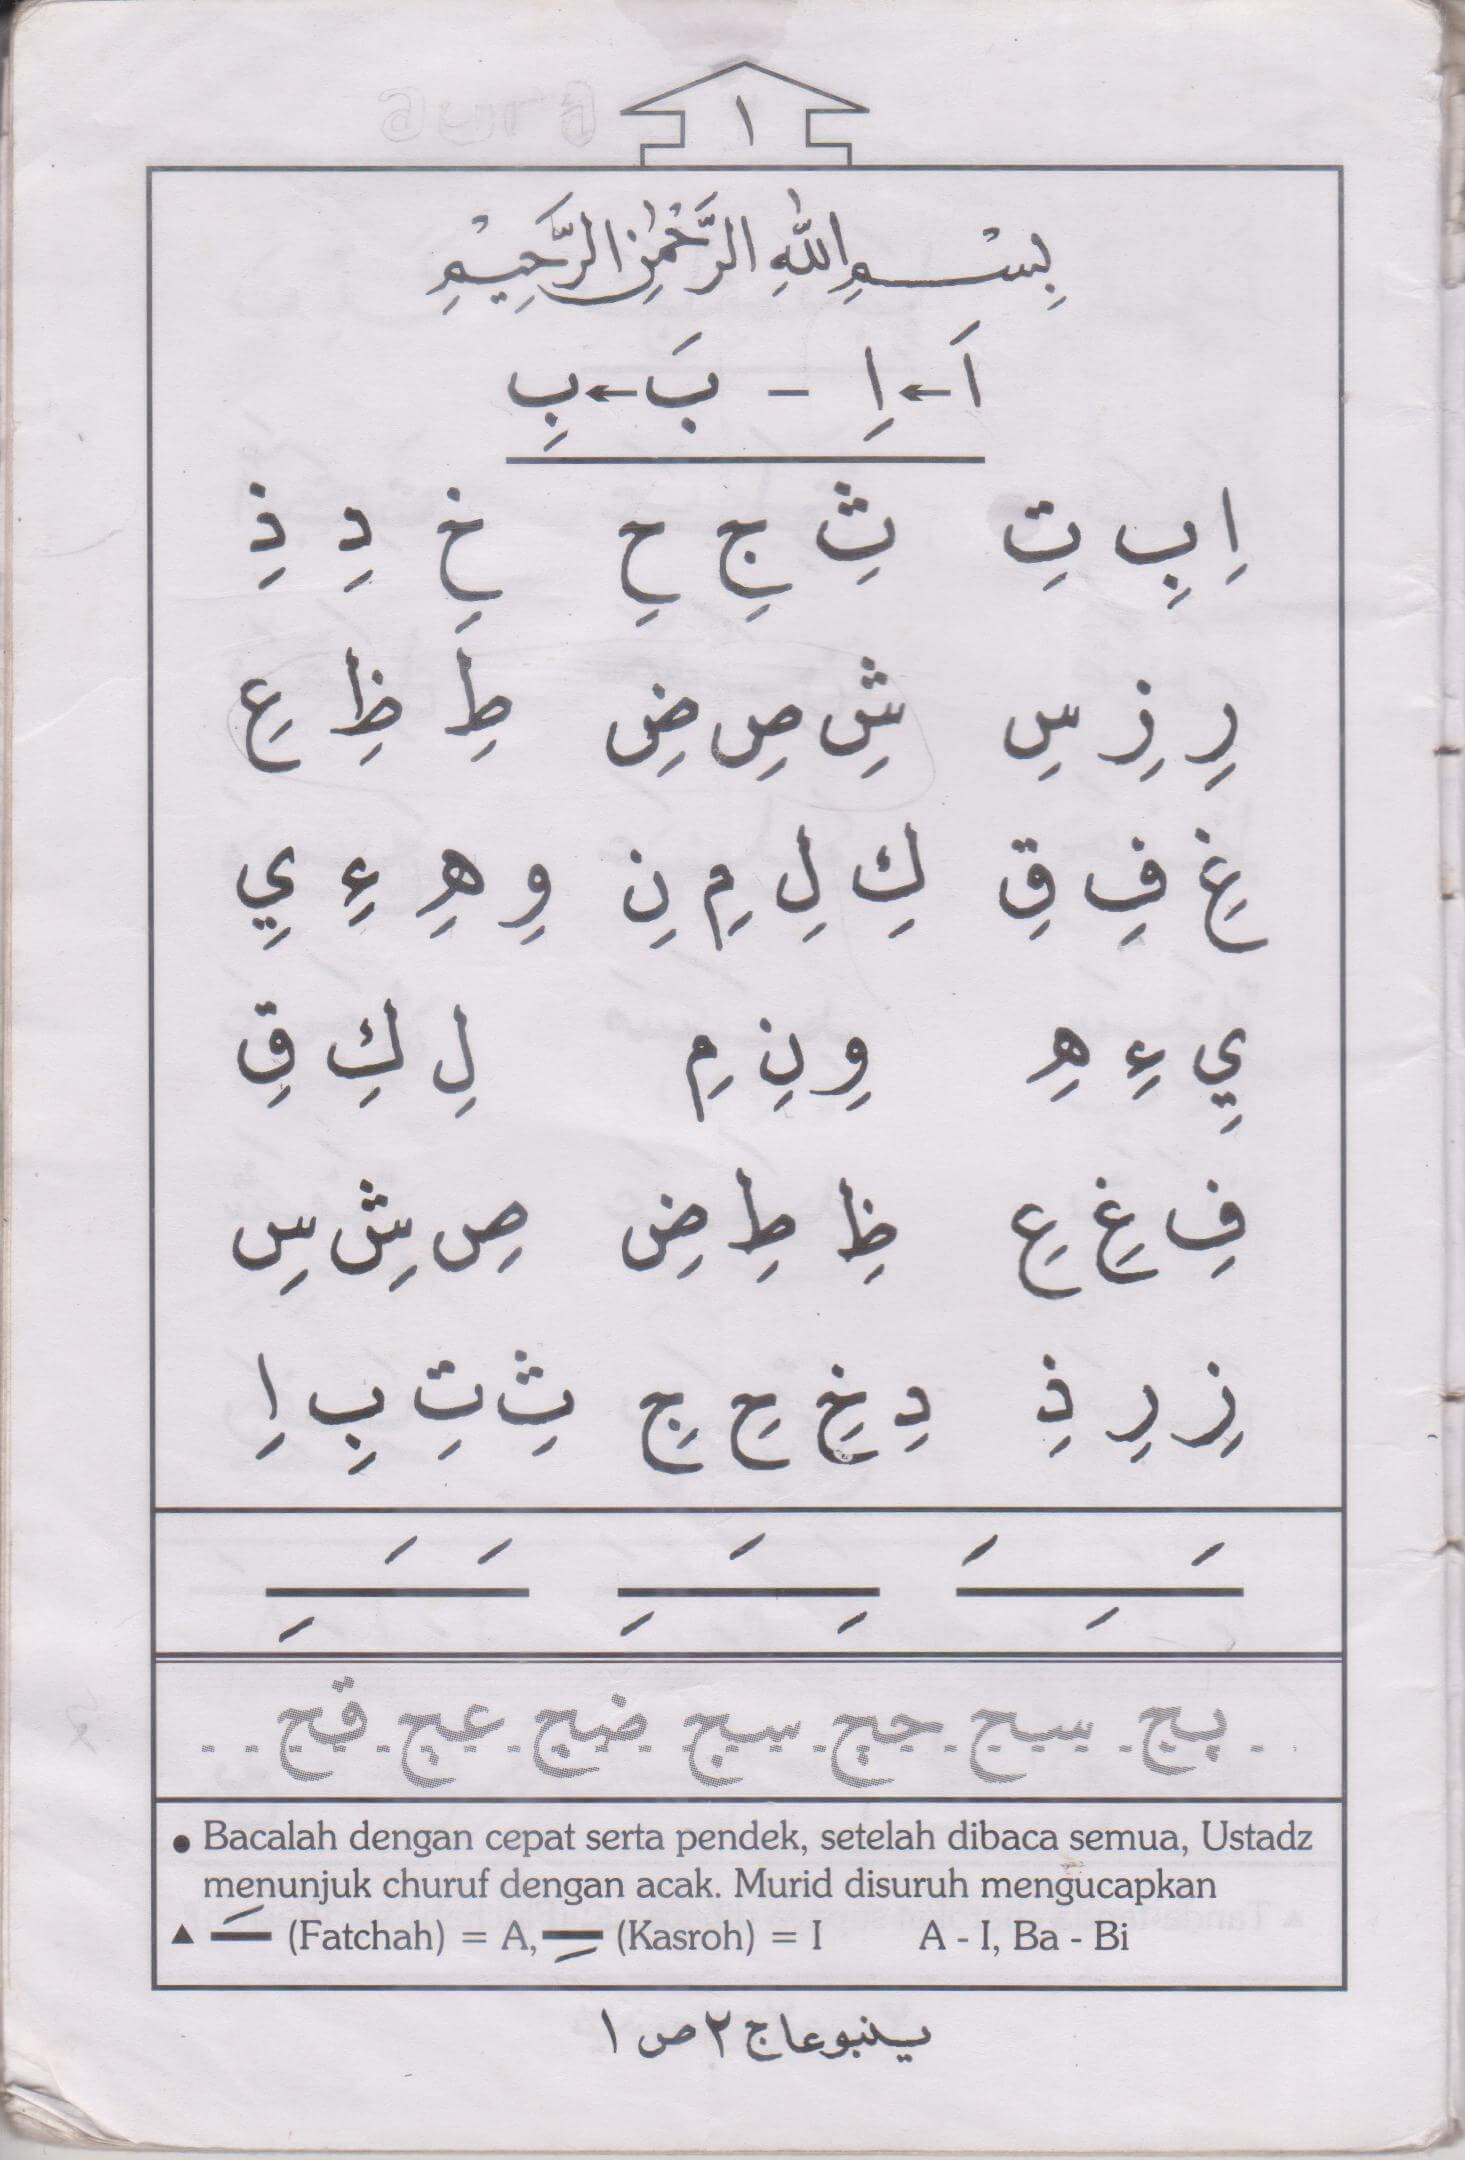 ١
بِسْـــمِ اللّٰهِ الرَّحْمٰنِ الرَّحِيْمِ
اَ ← اِ – بَ ← بِ
اِ بِ تِ ثِ جِ حِ خِ دِ ذِ
رِ زِ سِ شِ صِ ضِ طِ ظِ عِ
غِ فِ قِ كِ لِ مِ نِ وِ هِ ءِ يِ
يِ ءِ هِ وِ نِ مِ لِ كِ قِ
فِ غِ عِ ظِ طِ ضِ صِ شِ سِ
زِ رِ ذِ دِ خِ حِ جِ ثِ تِ بِ اِ
ـَـِـَـ ـِـَـِـ ـَـَـِـ
Bacalah dengan cepat serta pendek, setelah dibaca semua, Ustadz
menunjuk churuf dengan acak. Murid disuruh mengucapkan
▲ ـَـ (Fatchah) = A, ـِـ (Kasroh) = I A - I, Ba - Bi
ينبوعا ج ٢ ص ١